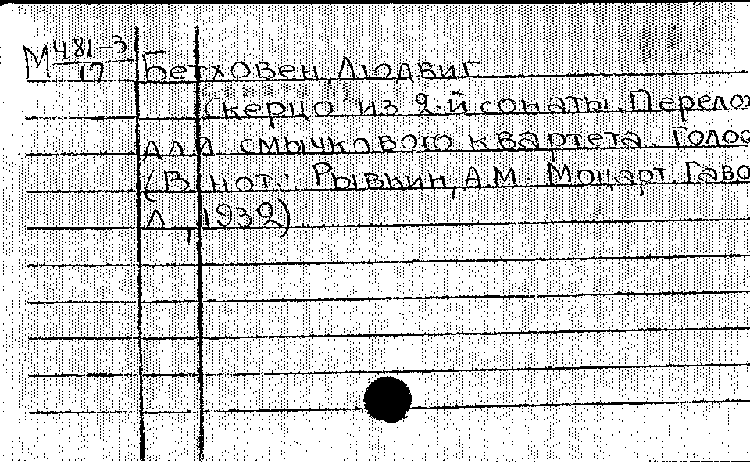 М 481-3/17 Бетховен, Людвиг
Скерцо из 2-й сонаты. Перелож
для смычкового квартета. Голос
(В нот. Рывкин, А.М. Моцарт. Гаво
Л., 1932)